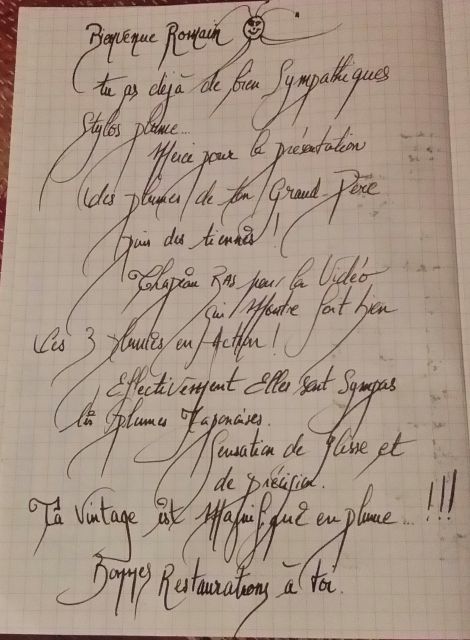 Bienvenue Romain
tu as déjà de bien Sympathiques
Stylos plume...
Merci pour la présentation
des plumes de ton Grand-Père
puis des tiennes !
Chapeau Ras pour la Vidéo
qui Montre fort bien
Les 3 plumes en Action !
Effectivement Elles sont Sympas
les plumes Japonaises.
Sensation de Glisse et
de précision.
Ta Vintage est Magnifique en plume... !!!
Bonnes Restaurations à toi.